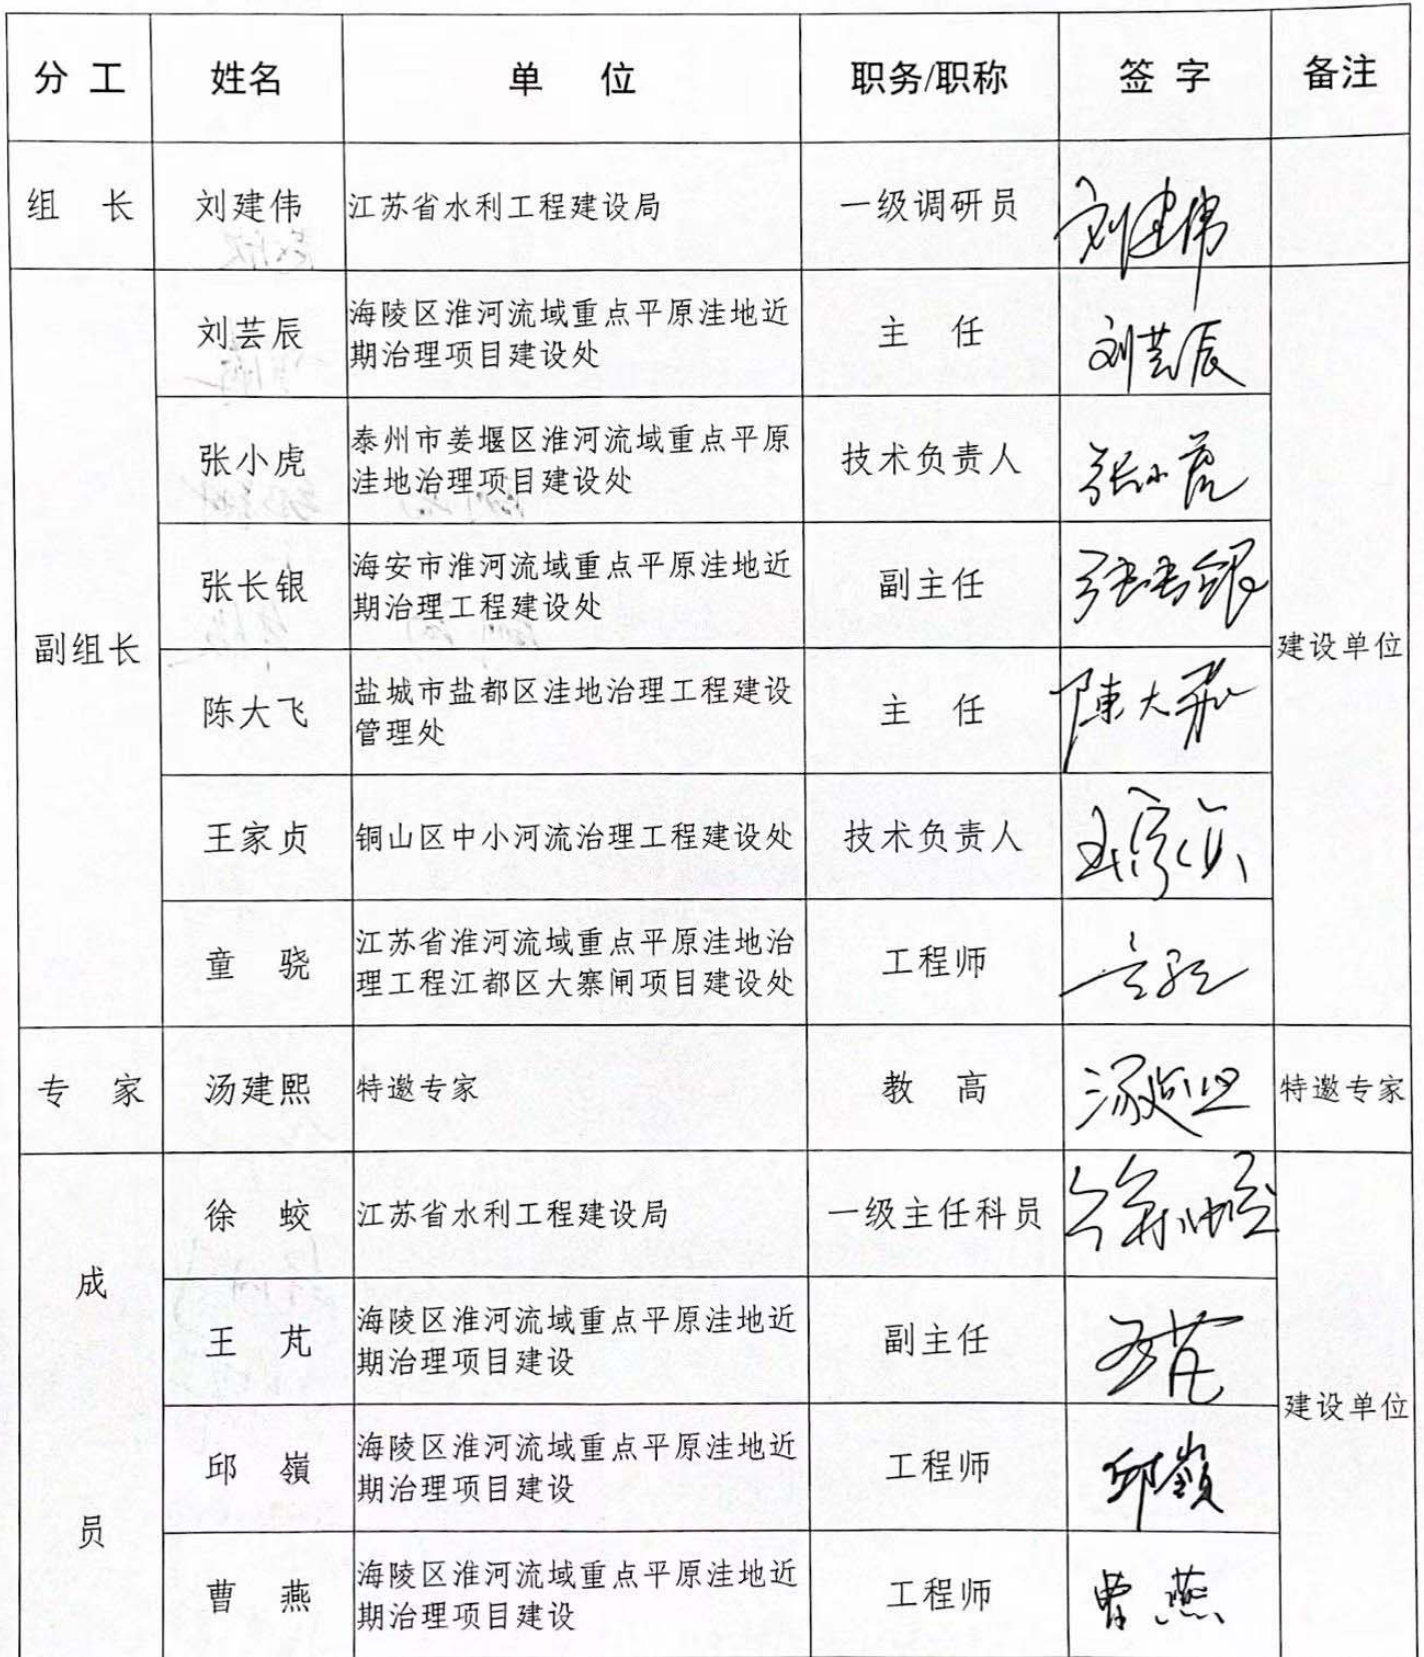 分 工 姓名 单 位 职务/职称 签 字 备注
组 长 刘建伟 江苏省水利工程建设局 一级调研员 刘建伟
副组长
刘芸辰 海陵区淮河流域重点平原洼地近
期治理项目建设处 主 任 刘芸辰
张小虎 泰州市姜堰区淮河流域重点平原
洼地治理项目建设处 技术负责人 张小虎
张长银 海安市淮河流域重点平原洼地近
期治理工程建设处 副主任 张长银
建设单位
陈大飞 盐城市盐都区洼地治理工程建设
管理处 主 任 陳大飛
王家贞 铜山区中小河流治理工程建设处 技术负责人 王家贞
童 骁 江苏省淮河流域重点平原洼地治
理工程江都区大寨闸项目建设处 工程师 童骁
专 家 汤建熙 特邀专家 教 高 汤建熙 特邀专家
成
员
徐 蛟 江苏省水利工程建设局 一级主任科员 徐蛟
王 芃 海陵区淮河流域重点平原洼地近
期治理项目建设 副主任 王芃
建设单位
邱 嶺 海陵区淮河流域重点平原洼地近
期治理项目建设 工程师 邱嶺
曹 燕 海陵区淮河流域重点平原洼地近
期治理项目建设 工程师 曹燕